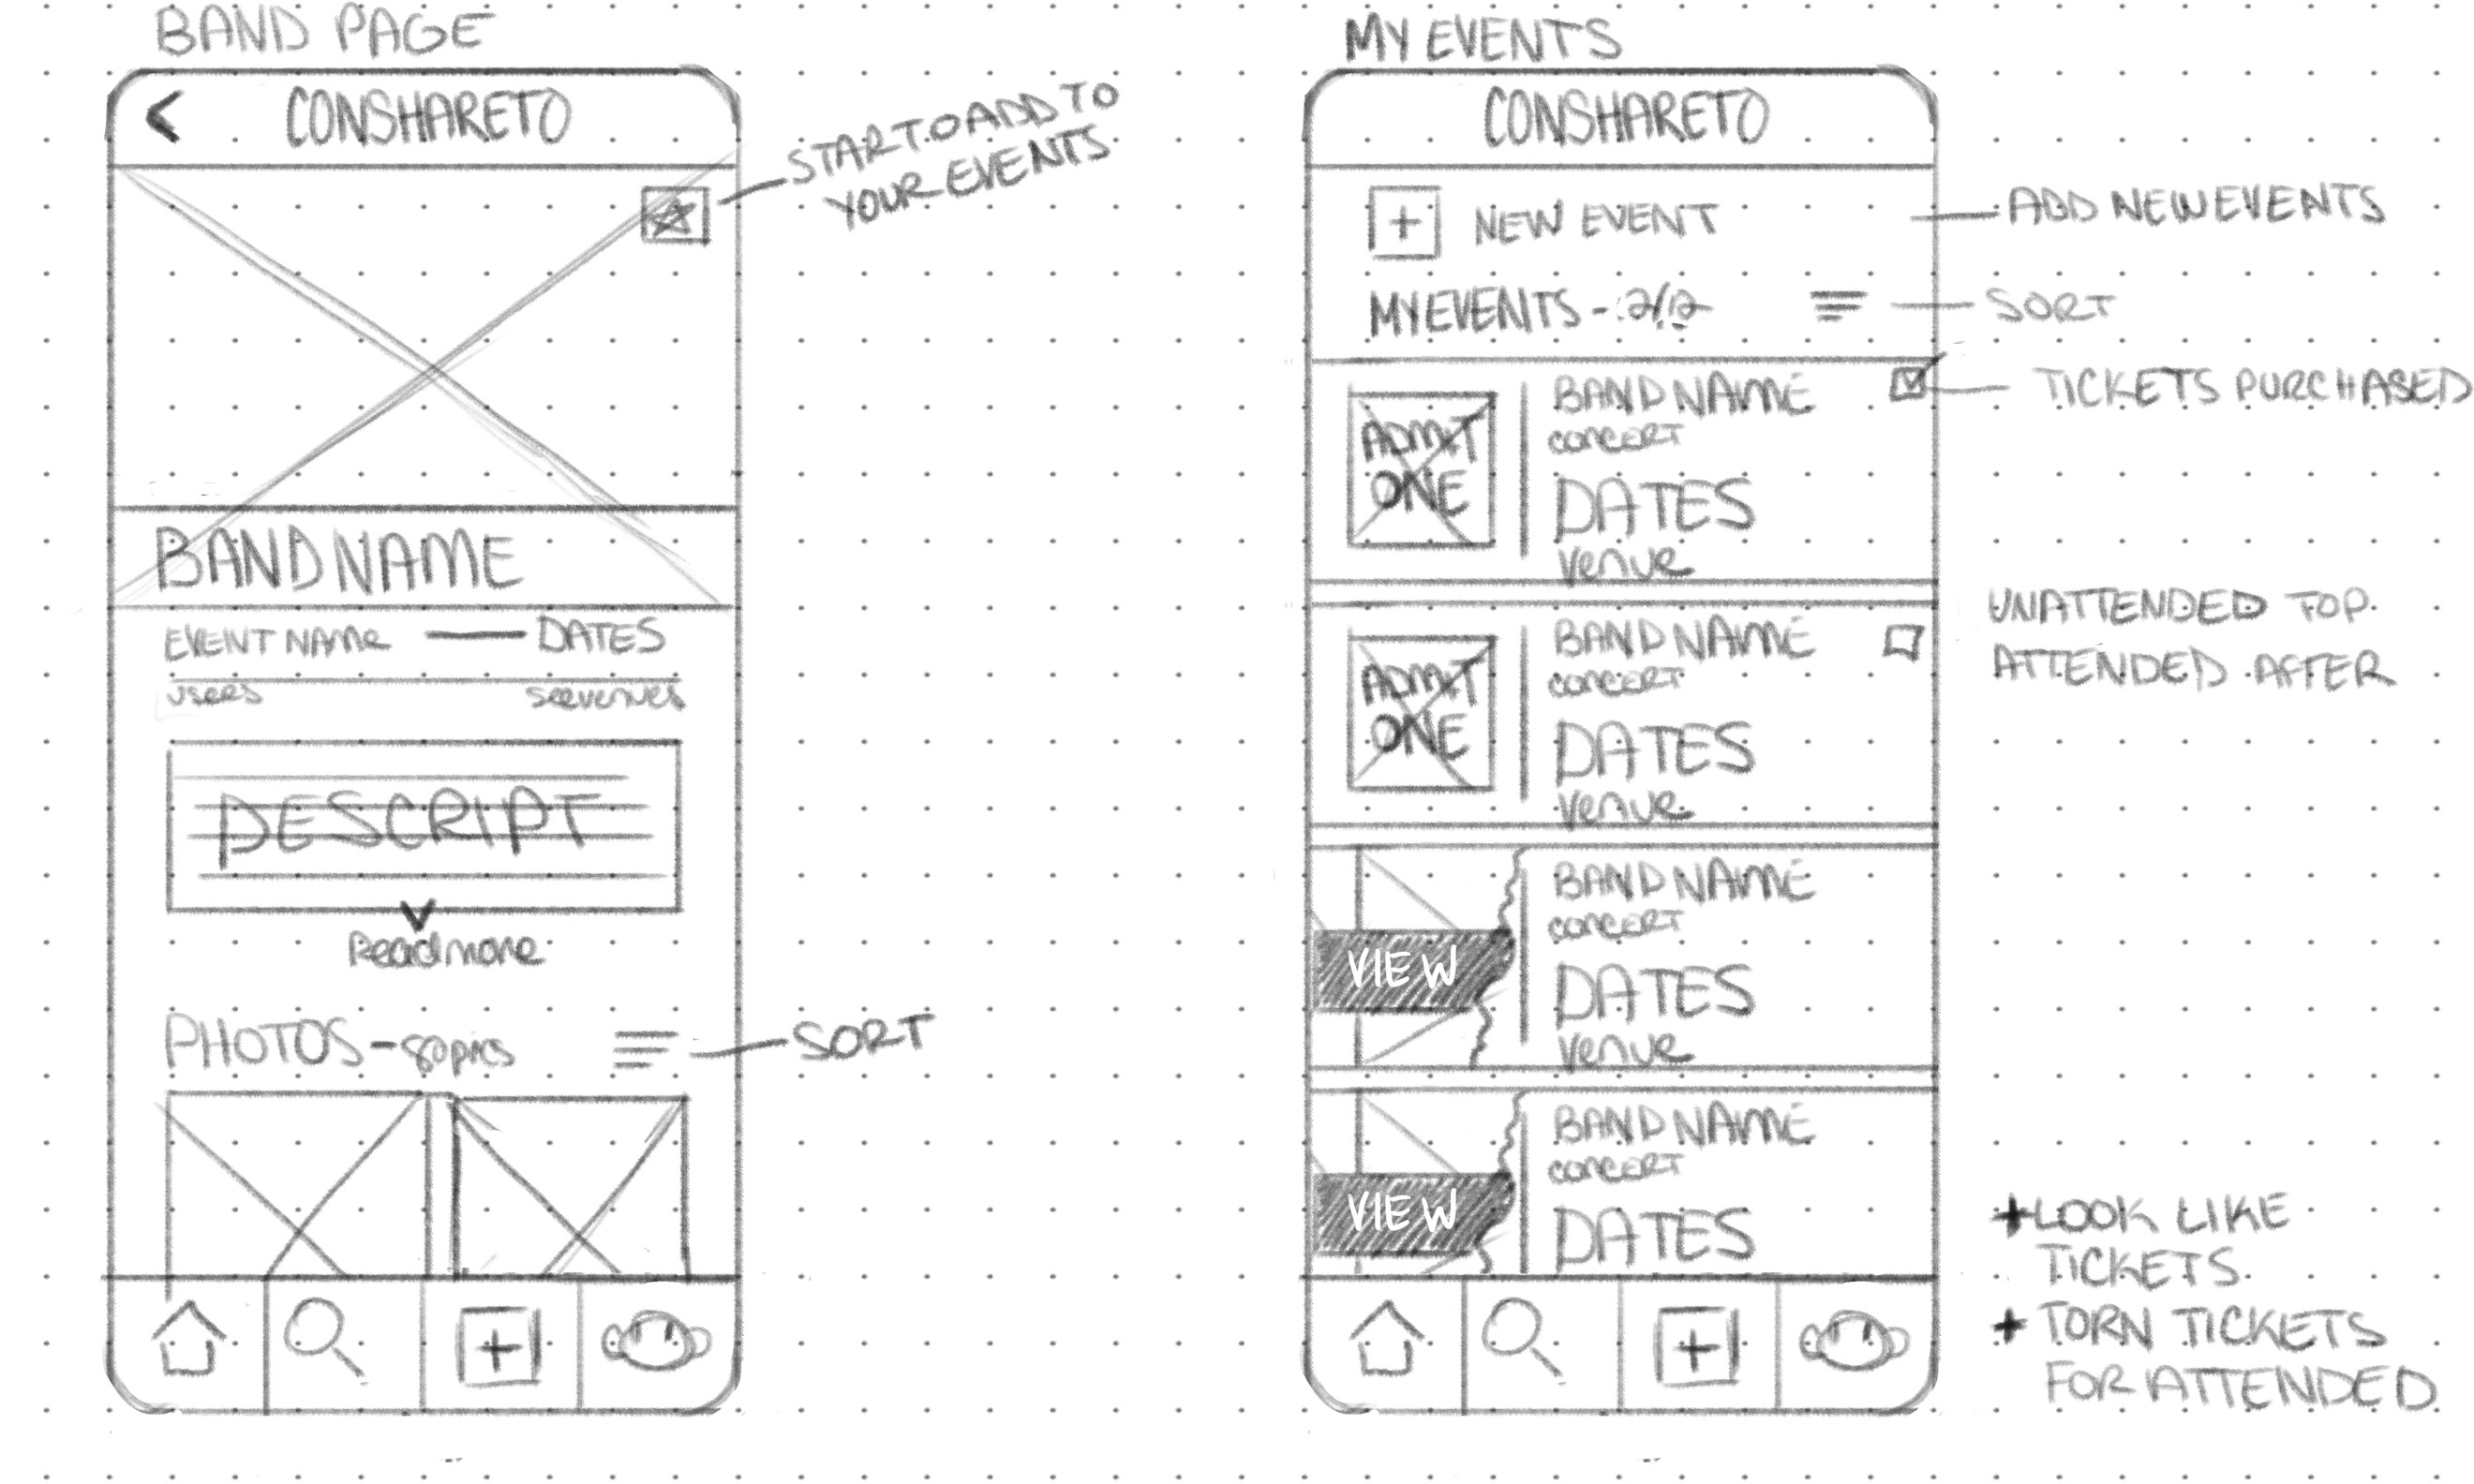 BAND PAGE
<
CONSHARETO
START TO ADD TO
YOUR EVENTS
BAND NAME
EVENT NAME — DATES
users
see venues
DESCRIPT
Read more
PHOTOS - 80 pics
SORT
+
MY EVENTS
CONSHARETO
+ NEW EVENT
ADD NEW EVENTS
MY EVENTS - 2/12
SORT
ADMIT
ONE
BAND NAME
CONCERT
DATES
Venue
TICKETS PURCHASED
ADMIT
ONE
BAND NAME
CONCERT
DATES
Venue
UNATTENDED TOP
ATTENDED AFTER
VIEW
BAND NAME
CONCERT
DATES
Venue
VIEW
BAND NAME
CONCERT
DATES
+
+ LOOK LIKE
TICKETS
+ TORN TICKETS
FOR ATTENDED